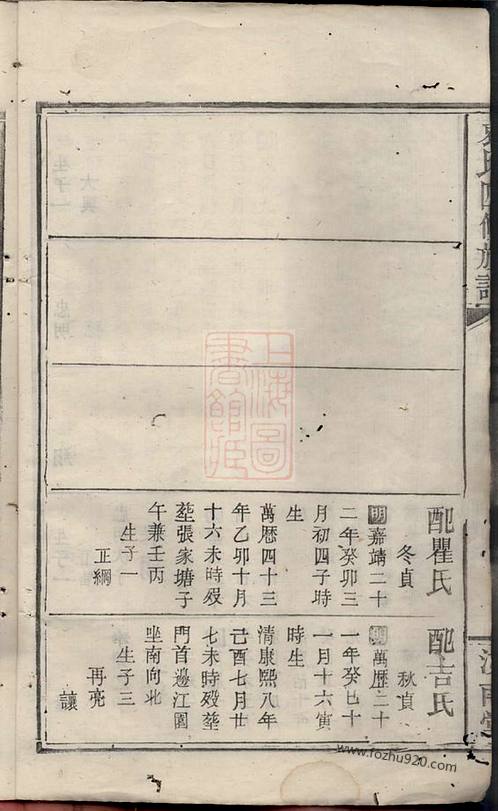 氏四修族譜
上海圖
書館藏
配瞿氏
冬貞
明嘉靖二十
二年癸卯三
月初四子時
生
萬曆四十三
年乙卯十月
十六未時歿
塟張家塘子
午兼壬丙
生子一
正綱
配吉氏
秋貞
明萬歷二十
一年癸巳十
一月十六寅
時生
清康熙八年
己酉七月廿
七未時歿塟
門首邊江園
坐南向北
生子三
再亮
讓
www.fozhu920.com